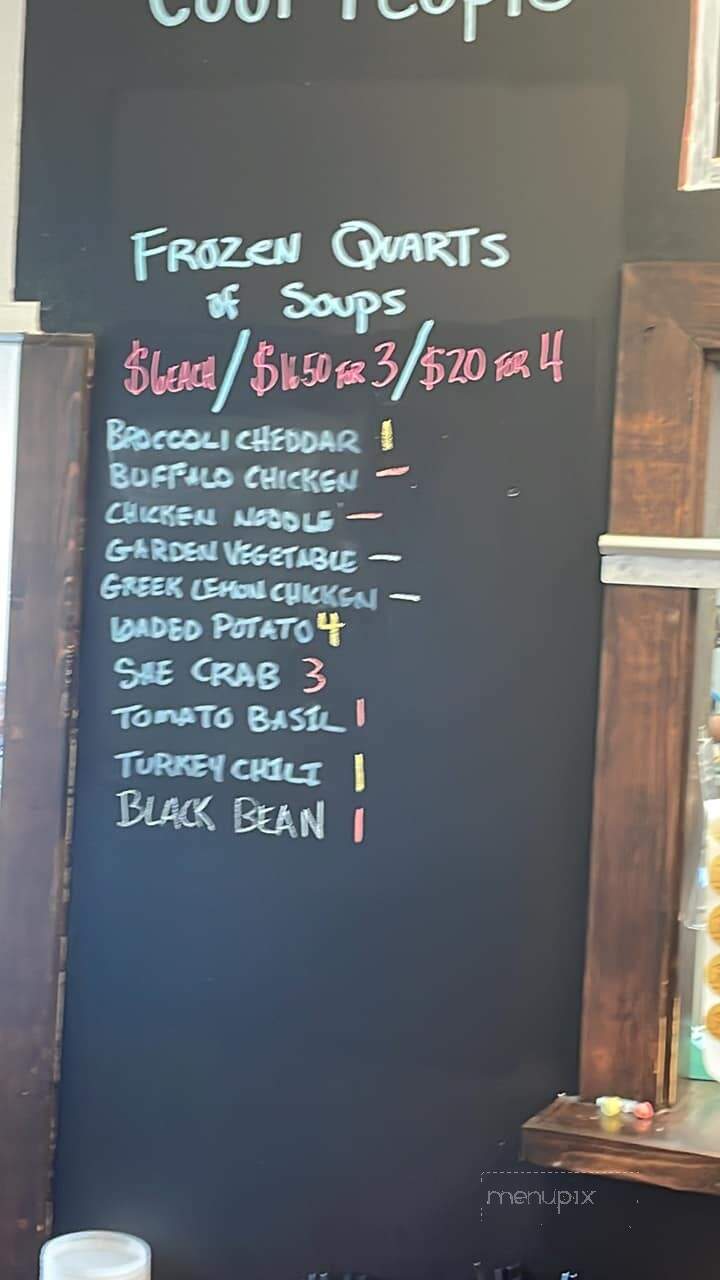 Cool People
FROZEN QUARTS
of Soups
$6 EACH / $16.50 FOR 3 / $20 FOR 4
BROCCOLI CHEDDAR 1
BUFFALO CHICKEN —
CHICKEN NOODLE —
GARDEN VEGETABLE —
GREEK LEMON CHICKEN —
LOADED POTATO 4
SHE CRAB 3
TOMATO BASIL 1
TURKEY CHILI 1
BLACK BEAN 1
menupix